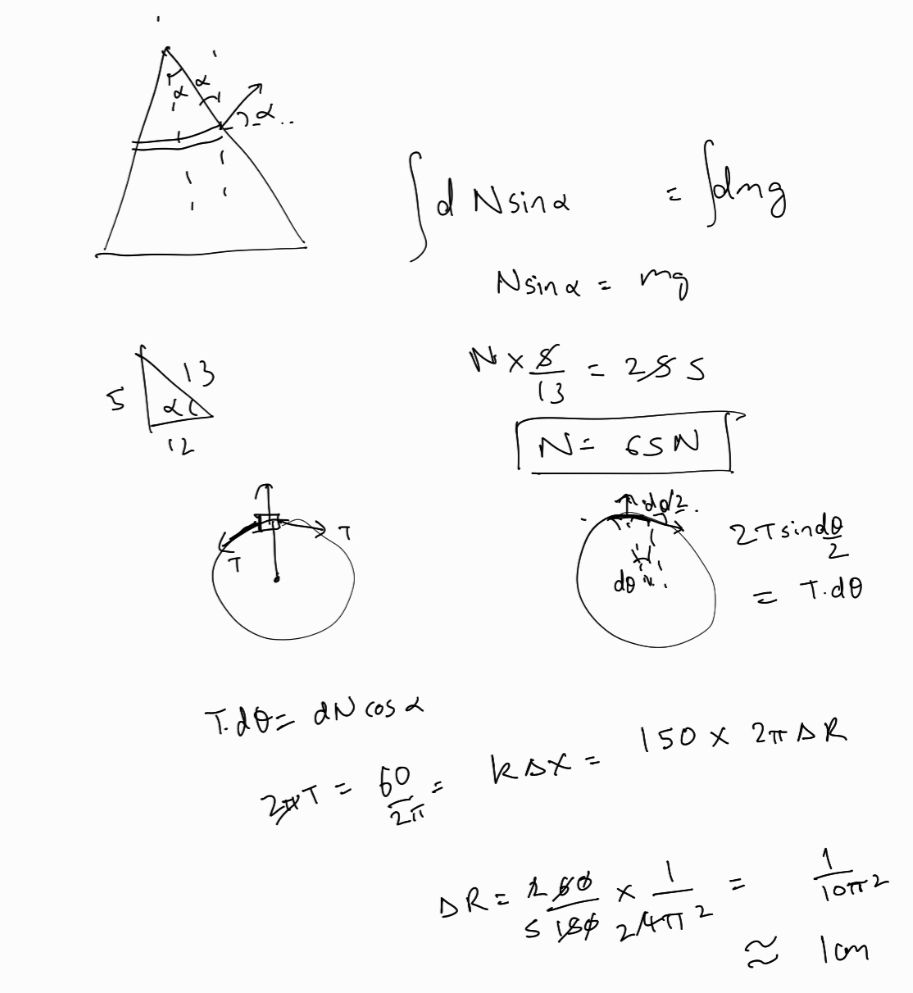 α α
α
∫ d N sin α = ∫ dmg
N sin α = mg
5 13 α 12
N × 5/13 = 25 5
N = 65 N
T T
dθ/2
dθ
2T sin dθ/2
= T.dθ
T.dθ = dN cos α
2π T = 60/2π = k Δx = 150 × 2π ΔR
ΔR = 2 60/5 150 × 1/2 4π2 = 1/10π2
≈ 1 cm